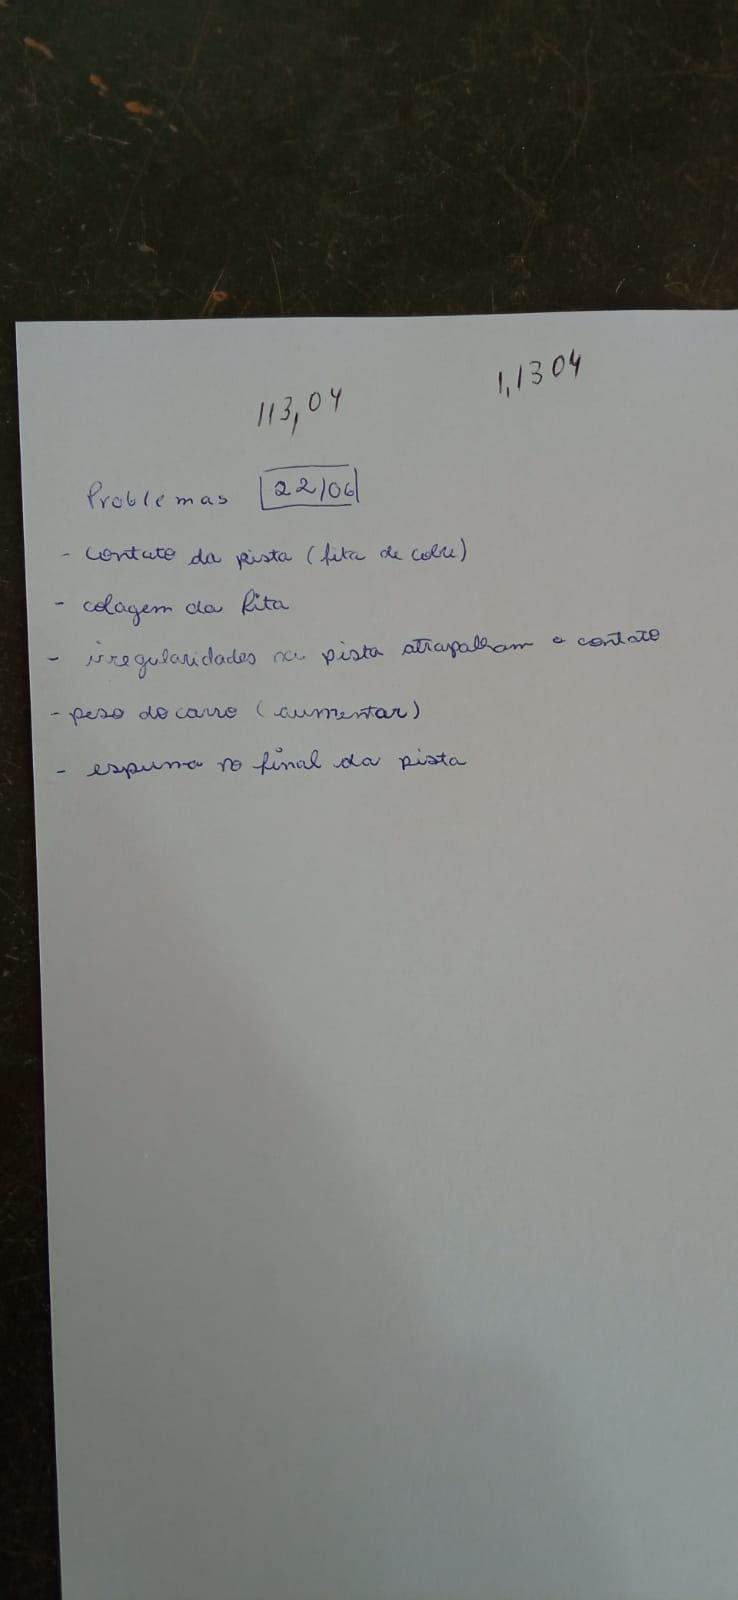 113,04 1,1304
Problemas 22/06
- contato da pista (fita de cobre)
- colagem da fita
- irregularidades na pista atrapalham o contato
- peso do carro (aumentar)
- espuma no final da pista